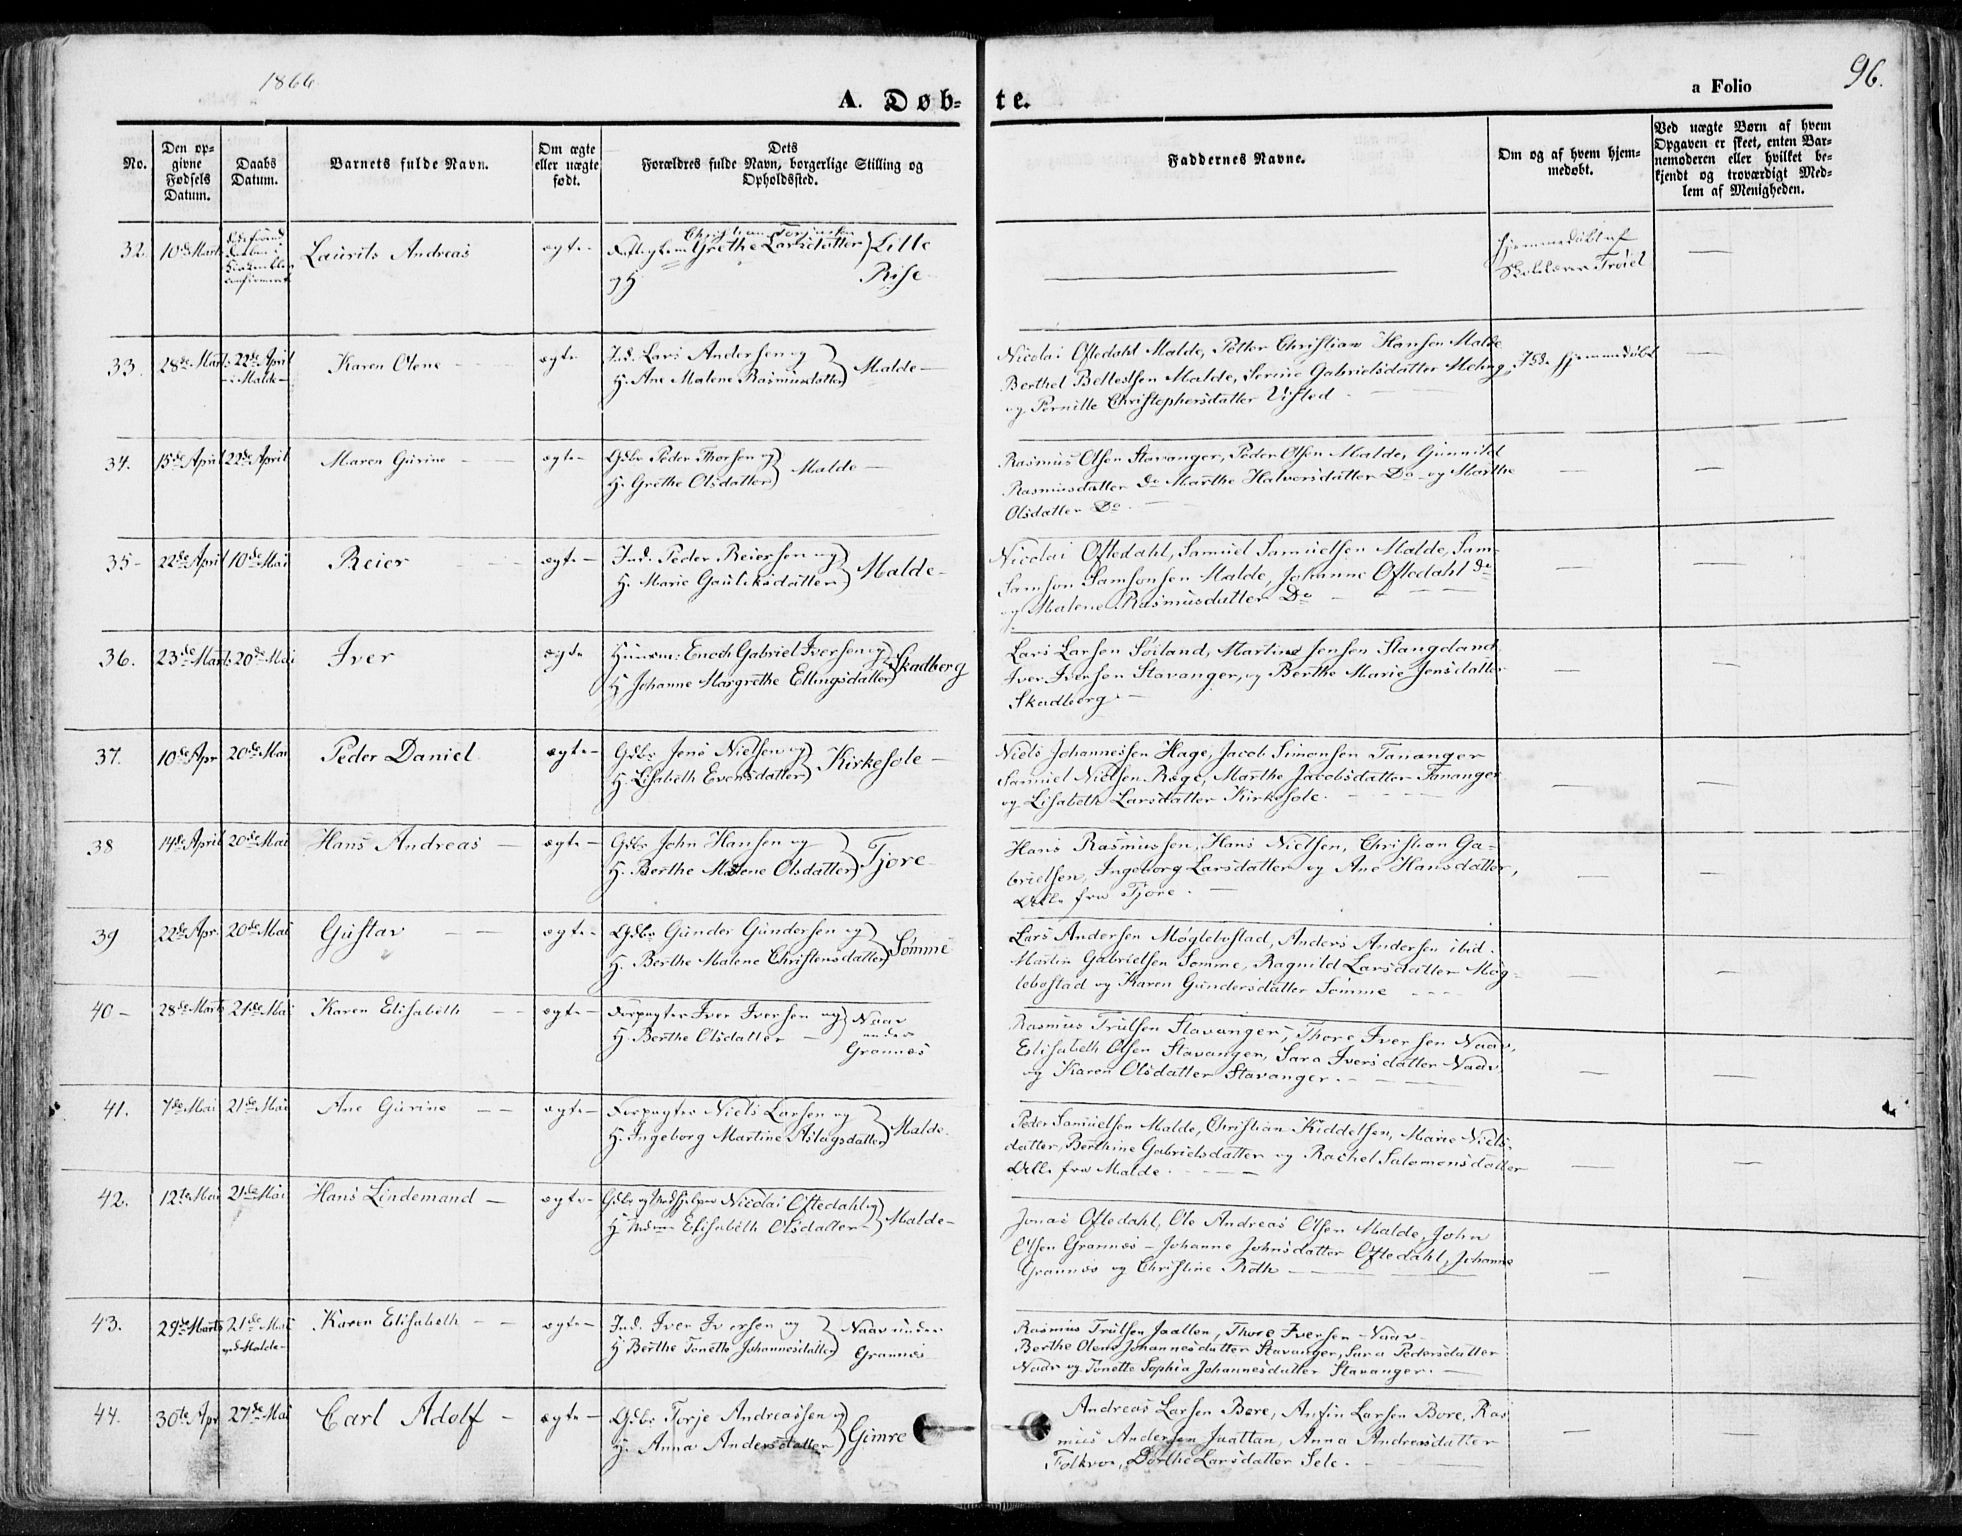 1866
96.
A. Døb=
te.
a Folio
No.
Den op=
givne
Fødsels
Datum.
Daabs
Datum.
Barnets fulde Navn.
Om ægte
eller uægte
født.
Dets
Forældres fulde Navn, borgerlige Stilling og
Opholdssted.
Faddernes Navne.
Om og af hvem hjem=
medøbt.
Ved uægte Børn af hvem
Opgaven er skeet, enten Bar=
nemoderen eller hvilket be=
kjendt og troværdigt Med=
lem af Menigheden.
32.
10de Marts
Laurits Andreas
ægte -
Christian Torjusen
Grethe Larsdatter
og H
Lille
Rise
hjemmedøbt af
Skolelærer Trøiel
33.
28de Marts
22de April
i Malde
Karen Olene
ægte
Ind. Lars Andersen og
H. Ane Malene Rasmusdatter
Malde
Nicolai Oftedahl Malde, Petter Christian Hansen Malde
Berthel Bettelsen Malde, Serine Gabrielsdatter Meling
og Pernille Christophersdatter Uisted
hjemmedøbt
34.
15de April
22de April
Maren Gurine
ægte
Gdbr Peder Thorsen og
H. Grethe Olsdatter
Malde
Rasmus Olsen Stavanger, Peder Olsen Malde, Gunnild
Rasmusdatter do Marthe Halvorsdatter Do og Marthe
Olsdatter Do
35
22de April
10de Mai
Reier
ægte
Ind. Peder Reiersen og
H. Marie Gauliksdatter
Malde
Nicolai Oftedahl, Samuel Samuelsen Malde, Sam-
Samson Samsonsen Malde, Johanne Oftedahl do
og Malene Rasmusdatter Do
36.
23de Marts
20de Mai
Iver
ægte
Huusm: Enoch Gabriel Iversen og
H Johanne Margrethe Ellingsdatter
Skadberg
Lars Larsen Søiland, Martine Jensen Stangeland
Iver Iversen Stavanger, og Berthe Marie Jensdatter
Skadberg
37.
10de Apr
20de Mai
Peder Daniel
ægte
Gdbr Jens Nielsen og
H. Lisabeth Evensdatter
Kirkesole
Niels Johannessen Hage, Jacob Simonsen Tananger
Samuel Nielsen Røge, Marthe Jacobsdatter Tananger
og Lisabeth Larsdatter Kirkesole.
38
14de April
20de Mai
Hans Andreas
ægte
Gdbr John Hansen og
H. Berthe Malene Olsdatter
Tjore
Hans Rasmussen, Hans Nielsen, Christian Ga-
brielsen, Ingeborg Larsdatter og Ane Hansdatter,
Alle fra Tjore.
39
22de Apr
20de Mai
Gustav
ægte
Gdbr Gunder Gundersen og
H. Berthe Malene Christensdatter
Sømme
Lars Andersen Møglebostad, Anders Andersen ibid.
Martin Gabrielsen Sømme, Ragnild Larsdatter Møg-
lebostad og Karen Gundersdatter Sømme
40
28de Marts
21de Mai
Karen Elisabeth
ægte
Forpagter Iver Iversen og
H. Berthe Olsdatter
Naav
under
Grannes
Rasmus Trulsen Stavanger, Thore Iversen Naav,
Elisabeth Olsen Stavanger, Sara Iversdatter Naav
og Karen Olsdatter Stavanger.
41.
7de Mai
21de Mai
Ane Gurine
ægte
Forpagter Niels Larsen og
H. Ingeborg Martine Aslagsdatter
Malde
Peder Samuelsen Malde, Christian Kiddelsen, Marie Niels-
datter, Berthine Gabrielsdatter og Rachel Salomonsdatter
Alle fra Malde.
42.
12te Mai
21de Mai
Hans Lindemand
ægte
Gdbr og Medhjelper Nicolai Oftedahl og
H Elisabeth Olsdatter
Malde
Jonas Oftedahl, Ole Andreas Olsen Malde, John
Olsen Grannes - Johanne Johnsdatter Oftedahl, Johanne
Grannes og Christine Roth
43.
29de Marts
21de Mai
ved Malde
Karen Elisabeth
ægte
Ind. Iver Iversen og
H Berthe Tonette Johannesdatter
Naav under
Grannes
Rasmus Trulsen Jaatten, Thore Iversen Naav
Berthe Olene Johannesdatter Stavanger, Sara Pedersdatter
Naav og Tonette Sophia Johannesdatter Stavanger.
44.
30te Apr
27de Mai
Carl Adolf
ægte
Gdbr Torje Andreassen og
H. Anna Andersdatter
Gimre
Andreas Larsen Bore, Anfin Larsen Bore, Ras
mus Andersen Jaattan, Anna Andreasdatter
Folkvor, Dorthe Larsdatter Sele.